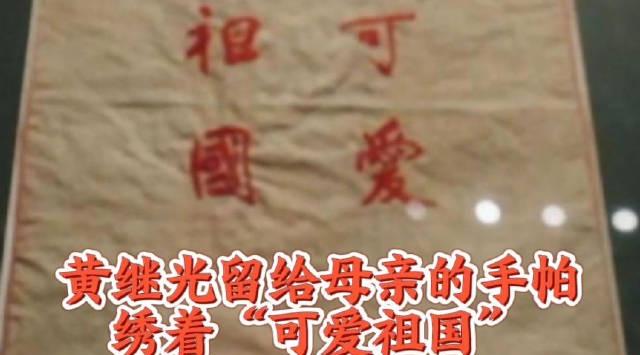 可愛
祖國
黄继光留给母亲的手帕
绣着“可爱祖国”